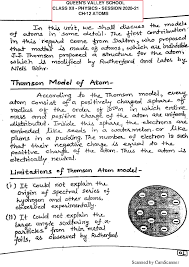 QUEEN'S VALLEY SCHOOL
CLASS XII - PHYSICS - SESSION 2020-21
CH 12 ATOMS
In this unit, we shall discuss the models
of atoms in some detail. The first contribution
in this regard came from Dalton, who proposed
that matter is made of atoms which are indivisible
J.J. Thomson proposed a structure for the atoms
which is modified by Rutherford and later by
Niels Bohr
Thomson Model of Atom-
According to the Thomson model, every
atom consist of a positively charged sphere of
radius of the order of 10 m in which entire
mass and positive charge of the atom are uniformly
distributed. Inside this sphere, the electrons are
embedded like seeds in a watermelon or like
plums in a pudding. The number of electrons is such
that their negative charge is equal to the
positive charge of the atom. Thus the atom is
electrically neutral.
Limitations of Thomson Atom model-
(i) It could not explain the
origin of spectral series of
hydrogen and other atoms
electrical experimentally
(ii) It could not explain the
large angle scattering of
particles from thin metal
foils, as observed by Rutherford
Scanned by CamScanner